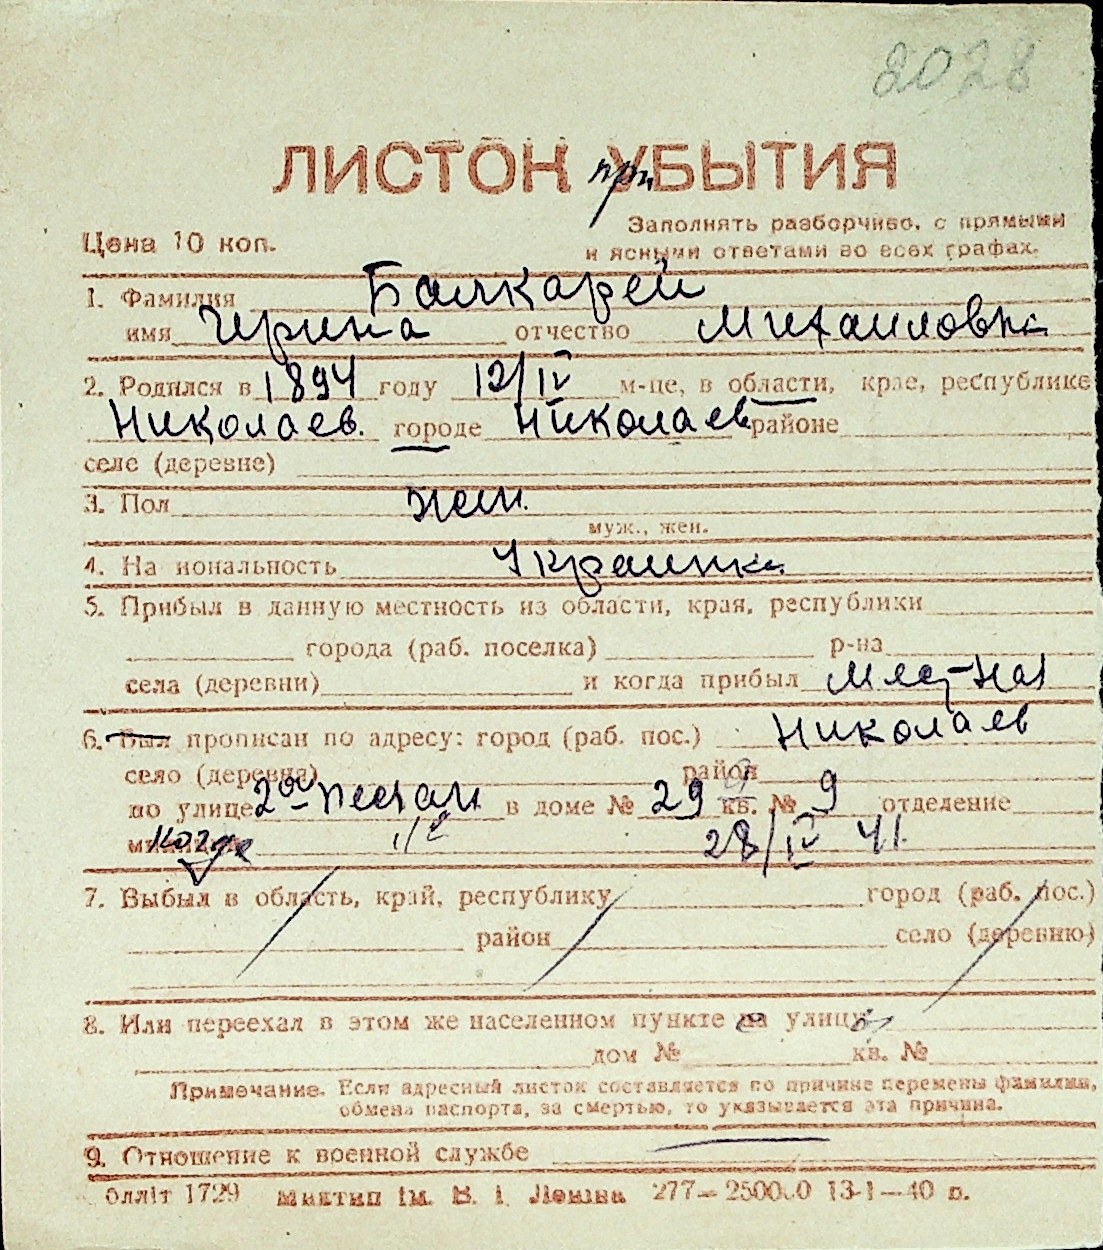 2028
ЛИСТОК УБЫТИЯ
при
Цена 10 коп.
Заполнять разборчиво, с прямыми
и ясными ответами во всех графах.
1. Фамилия Балкарей
имя Ирина отчество Михайловна
2. Родился в 1894 году 12/IV м-це, в области, крае, республике
Николаев. городе Николаев районе
селе (деревне)
3. Пол жен.
муж., жен.
4. На иональность Украинка
5. Прибыл в данную местность из области, края, республики
города (раб. поселка) р-на
села (деревни) и когда прибыл мест-ная
6. Был прописан по адресу: город (раб. пос.) Николаев
село (деревня) район
по улице 2ая Песчан в доме № 29 кв. № 9 отделение
когда 28/IV 41.
7. Выбыл в область, край, республику город (раб. пос.)
район село (деревню)
8. Или переехал в этом же населенном пункте на улицу
дом № кв. №
Примечание. Если адресный листок составляется по причине перемены фамилии,
обмена паспорта, за смертью, то указывается эта причина.
9. Отношение к военной службе
олліт 1729 ім. В. І. Леніна 277—250000 13-1—40 р.